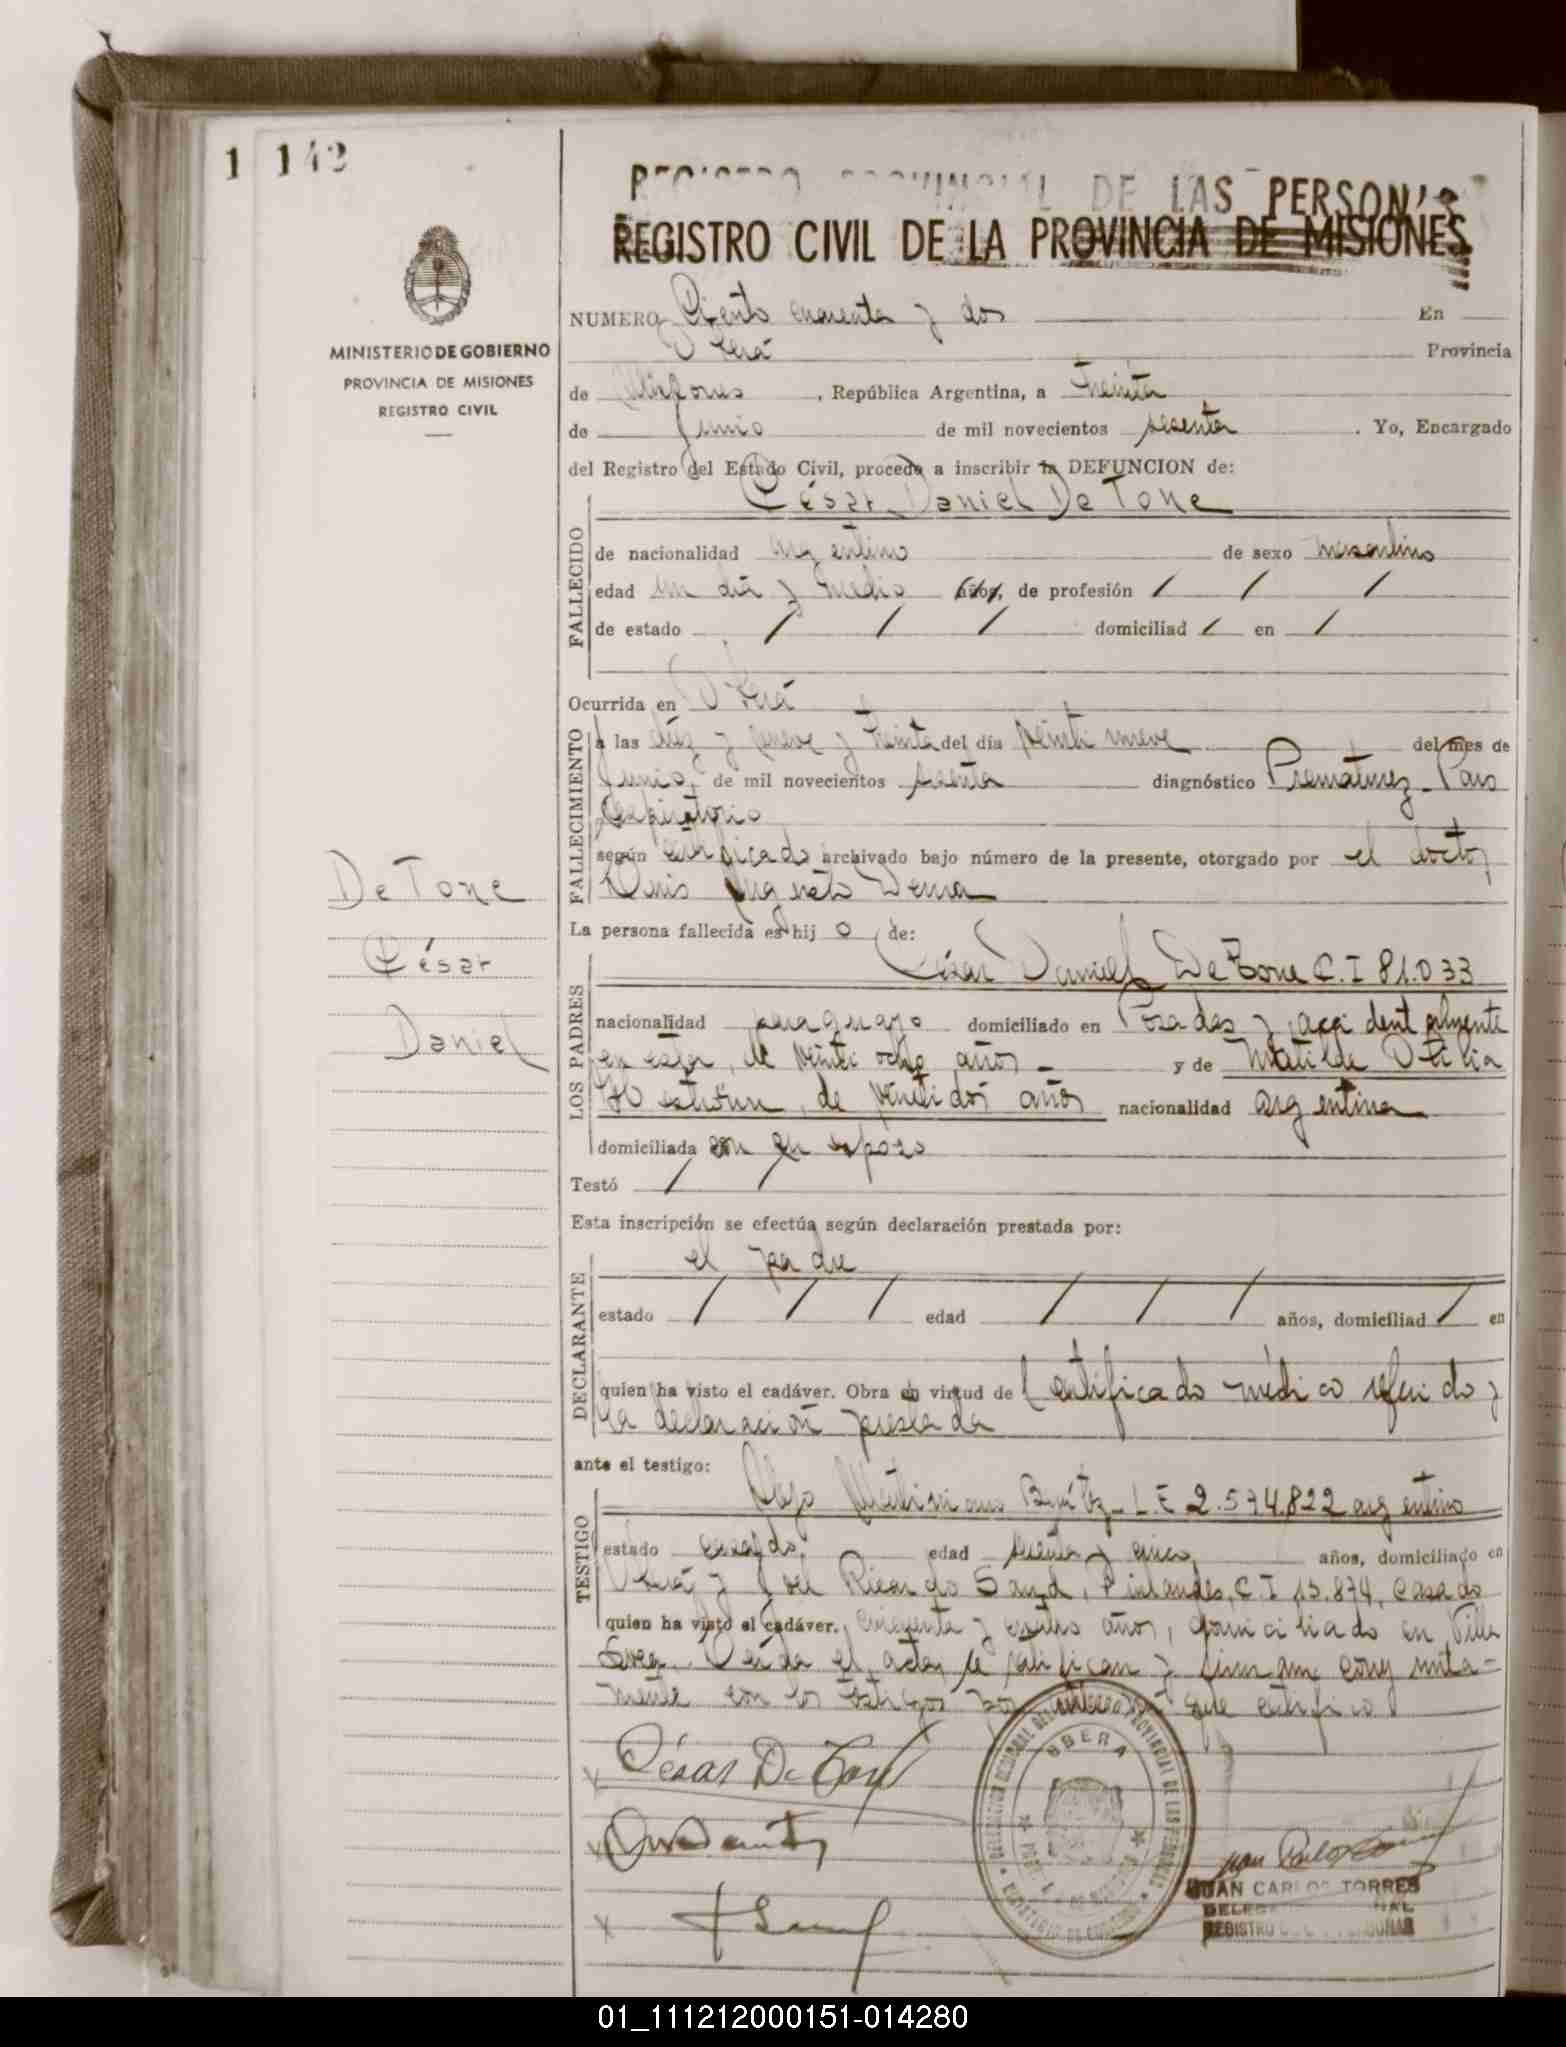 1 142
REGISTRO PROVINCIAL DE LAS PERSONAS
REGISTRO CIVIL DE LA PROVINCIA DE MISIONES
MINISTERIO DE GOBIERNO
PROVINCIA DE MISIONES
REGISTRO CIVIL
NUMERO Ciento cuarenta y dos En
Oberá Provincia
de Misiones, República Argentina, a treinta
de junio de mil novecientos sesenta. Yo, Encargado
del Registro del Estado Civil, procedo a inscribir la DEFUNCION de:
César Daniel De Tone
FALLECIDO
de nacionalidad argentino de sexo masculino
edad un día y medio años, de profesión / / /
de estado / / / domiciliad / en /
Ocurrida en Oberá
FALLECIMIENTO
a las diez y nueve y treinta del día veinti nueve del mes de
junio, de mil novecientos sesenta diagnóstico Prematurez - Paro
respiratorio
según certificado archivado bajo número de la presente, otorgado por el doctor
Luis Augusto Derna
De Tone
César
Daniel
La persona fallecida es hijo de:
LOS PADRES
César Daniel De Tone C.I 81.033
nacionalidad paraguayo domiciliado en Posadas y accidentalmente
en esta, de veinti ocho años y de Matilde Otilia
de veintidos años nacionalidad argentina
domiciliada con su esposo
Testó / /
Esta inscripción se efectúa según declaración prestada por:
DECLARANTE
el padre
estado / / / edad / / / años, domiciliad / en
quien ha visto el cadáver. Obra en virtud de certificado médico referido y
la declaración prestada
ante el testigo:
TESTIGO
Benítez - L.E 2.574.822 argentino
estado casado, edad sesenta y cinco, años, domiciliado en
Oberá y José Ricardo Sand, Finlandes, C.I 15.874, casado
quien ha visto el cadáver. cincuenta y cuatro años, domiciliado en Villa
Svea. Leída el acta, se ratifican y firman conjunta-
mente con los testigos por ante mí que certifico
César De Tone
DELEGACION REGIONAL DEL REGISTRO PROVINCIAL DE LAS PERSONAS
OBERA
MINISTERIO DE GOBIERNO
JUAN CARLOS TORRES
01_111212000151-014280